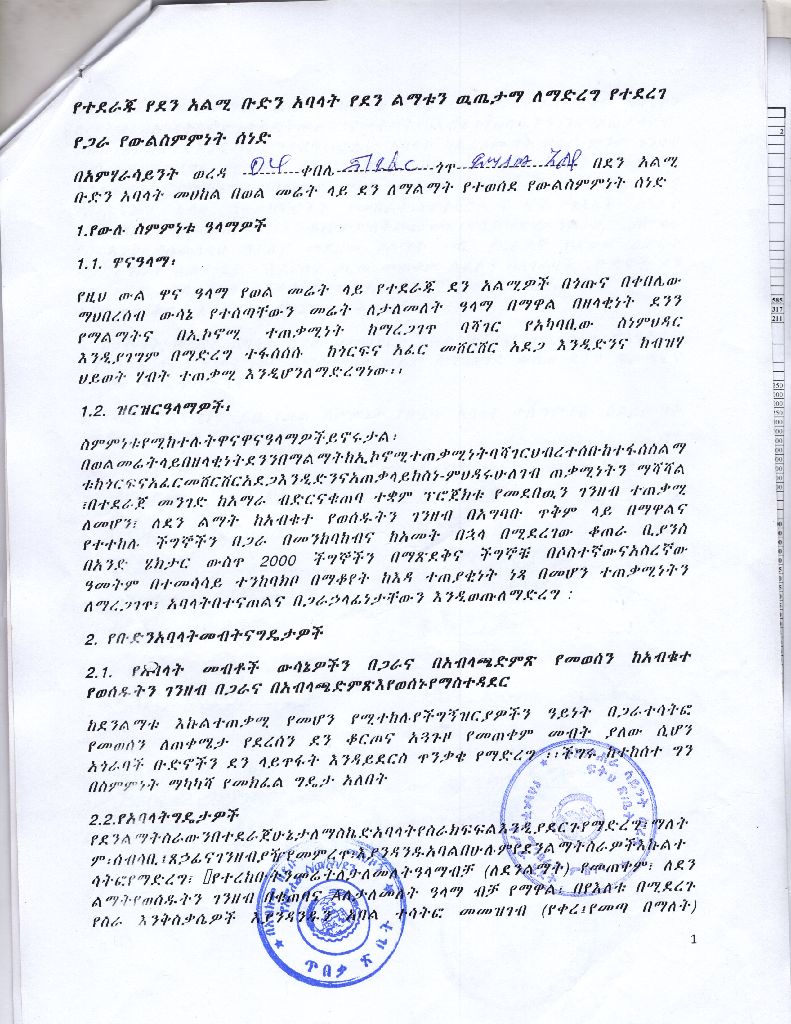 የተደራጁ የደን አልሚ ቡድን አባላት የደን ልማቱን ዉጤታማ ለማድረግ የተደረገ
የጋራ የውልስምምነት ሰነድ
በአምሃራሳይንት ወረዳ 04 ቀበሌ ጎጥ በደን አልሚ
ቡድን አባላት መሀከል በወል መሬት ላይ ደን ለማልማት የተወሰደ የውልስምምነት ሰነድ
1.የውሉ ስምምነቱ ዓላማዎች
1.1. ዋናዓላማ፡
የዚህ ውል ዋና ዓላማ የወል መሬት ላይ የተደራጁ ደን አልሚዎች በጎጡና በቀበሌው
ማህበረሰብ ውሳኔ የተሰጣቸውን መሬት ለታለመለት ዓላማ በማዋል በዘላቂነት ደንን
የማልማትና በኢኮኖሚ ተጠቃሚነት ከማረጋገጥ ባሻገር የአካባቢው ስነምህዳር
እንዲያገግም በማድረግ ተፋሰሰሱ ከጎርፍና አፈር መሸርሸር አደጋ እንዲድንና ከብዝሃ
ህይወት ሃብት ተጠቃሚ እንዲሆንለማድረግነው፡፡
1.2. ዝርዝርዓላማዎች፡
ስምምነቱየሚከተሉትዋናዋናዓላማዎችይኖሩታል፡
በወልመሬትላይበዘላቂነትደንንበማልማትከኢኮኖሚተጠቃሚነትባሻገርህብረተሰቡከተፋሰስልማ
ቱከጎርፍናአፈርመሸርሸርአደጋእንዲድንናአጠቃላይከስነ-ምህዳሩሁለገብ ጠቃሚነትን ማሻሻል
፣በተደራጀ መንገድ ከአማራ ብድርናቁጠባ ተቋም ፕሮጀክቱ የመደበዉን ገንዘብ ተጠቃሚ
ለመሆን፣ ለደን ልማት ከአብቁተ የወሰዱትን ገንዘብ በአግባቡ ጥቅም ላይ በማዋልና
የተተከሉ ችግኞችን በጋራ በመንከባከብና ከአመት በኋላ በሚደረገው ቆጠራ ቢያንስ
በአንድ ሄክታር ውስጥ 2000 ችግኞችን በማጽደቅና ችግኞቹ በሶስተኛውናአስረኛው
ዓመትም በተመሳሳይ ተንከባክቦ በማቆየት ከእዳ ተጠያቂነት ነጻ በመሆን ተጠቃሚነትን
ለማረጋገጥ፣ አባላትበተናጠልና በጋራኃላፊነታቸውን እንዲወጡለማድረግ ፡
2. የቡድንአባላትመብትናግዴታዎች
2.1. የአባላት መብቶች ውሳኔዎችን በጋራና በአብላጫድምጽ የመወሰን ከአብቁተ
የወሰዱትን ገንዘብ በጋራና በአብላጫድምጽእየወሰኑየማስተዳደር
ከደንልማቱ እኩልተጠቃሚ የመሆን የሚተከሉየችግኝዝርያዎችን ዓይነት በጋራተሳትፎ
የመወሰን ለጠቀሜታ የደረሰን ደን ቆርጦና አጓጉዞ የመጠቀም መብት ያለው ሲሆን
አጎራባች ቡድኖችን ደን ላይጥፋት እንዳይደርስ ጥንቃቄ የማድረግ ፡፡ችግሩ ከተከሰተ ግን
በስምምነት ማካካሻ የመክፈል ግዴታ አለበት
2.2.የአባላትግዴታዎች
የደንልማትስራውንበተደራጀሁኔታለማስኬድአባላትየስራክፍፍልእንዲያደርጉየማድረግ፤ማለት
ም፡ሰብሳቢ፣ጸኃፊናገንዘብያዥየመምረጥ፤እያንዳንዱአባልበሁሉምየደንልማትስራዎችእኩልተ
ሳትፎየማድረግ፤ የተረከቡትንመሬትለታለመለትዓላማብቻ (ለደንልማት) የመጠቀም፤ ለደን
ልማትየወሰዱትን ገንዘብ በቁጠባና Aለታለመለት ዓላማ ብቻ የማዋል፤ በየእለቱ በሚደረጉ
የስራ እንቅስቃሴዎች እያንዳንዱን አባል ተሳትፎ መመዝገብ (የቀረ፤የመጣ በማለት)
ጥበቃ ጽ ቤት
1